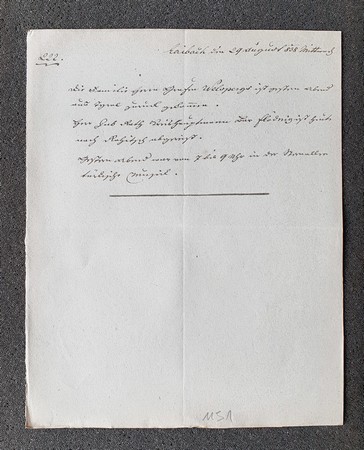 222.
Laibach den 29 August 838 Mittwoch
Die Familie Herr Grafen Welsperg ist gestern abend
aus Igul zurück gekommen.
Herr Gub. Rath Kreishauptmann Bar Flödnig ist heute
nach Rohitsch abgereist.
Gestern abend war von 7 bis 9 Uhr in der Sternallee
türkische Musik.
MSA